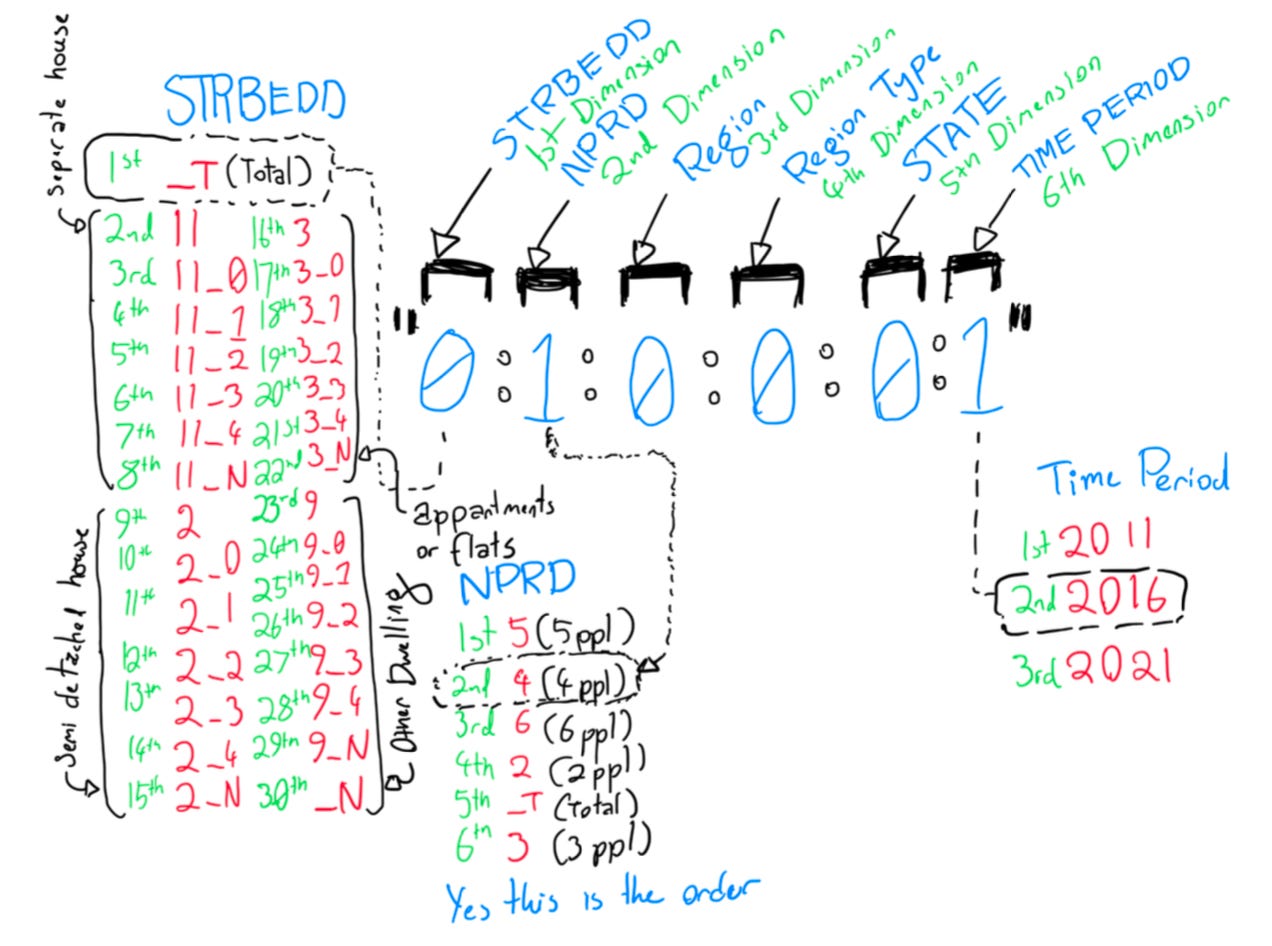 Separate house
STRBEDD
1st _T (Total)
2nd 11
3rd 11_0
4th 11_1
5th 11_2
6th 11_3
7th 11_4
8th 11_N
16th 3
17th 3_0
18th 3_1
19th 3_2
20th 3_3
21st 3_4
22nd 3_N
appartments
or flats
Semi detached house
9th 2
10th 2_0
11th 2_1
12th 2_2
13th 2_3
14th 2_4
15th 2_N
23rd 9
24th 9_0
25th 9_1
26th 9_2
27th 9_3
28th 9_4
29th 9_N
30th _N
Other Dwelling
STRBEDD
1st Dimension
NPRD
2nd Dimension
Region
3rd Dimension
Region Type
4th Dimension
STATE
5th Dimension
TIME PERIOD
6th Dimension
"0:1:0:0:0:1"
NPRD
1st 5 (5 ppl)
2nd 4 (4 ppl)
3rd 6 (6 ppl)
4th 2 (2 ppl)
5th _T (Total)
6th 3 (3 ppl)
Yes this is the order
Time Period
1st 2011
2nd 2016
3rd 2021